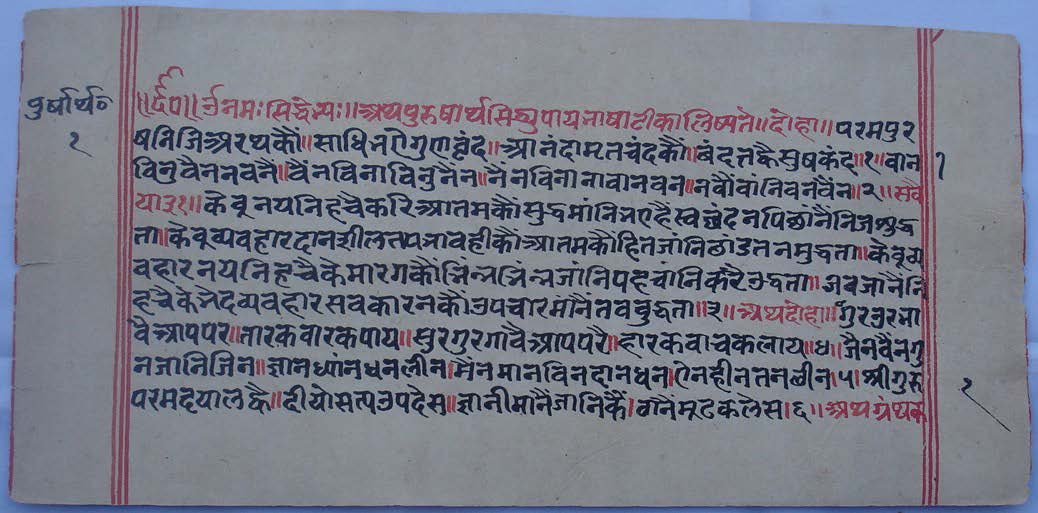 पुर्षार्थ॰
१
॥ॐ नमः सिद्धेभ्यः॥ अथ पुरुषार्थसिद्ध्युपाय भाषा टीका लिष्यते॥ दोहा॥ परम पुर
ष निज अरथ कौं॥ साधि भए गुण वृंद॥ आनंदामृत चंद कौं॥ बंदत ह्वै सुष कंद॥१॥ बान
१
बिनु वैन न बनै॥ वैंन बिना बिनु नैन॥ नैन बिना ना बान बन॥ नवौं बांनि बिन वैंन॥२॥ सवै
या ३१॥ केवू नय निहचै करि आतम कौं सुद्ध मांनि भए हैं स्वछंद न पिछांनै निज सुद्ध
ता॥ केवू व्यवहार दान शील तप भाव ही कौं आतम कौ हित जांनि छांडत न मुद्धता॥ केवू व्य
वहार नय निहचै के मारग कौं भिंन्न भिंन्न जांनि पहचांनि करै उद्धता॥ जब जानै नि
हचै के भेद व्यवहार सब कारन कौ उपचार मांनै तब बुद्धता॥३॥ अथ दोहा॥ श्रीगुर उर भा
वै आप पर॥ तारक वारक पाय॥ सुर गुर गावै आप परौ॥ हारक वाचक लाय॥४॥ जैन वैंन गु
न जानि जिन॥ ज्ञान ध्यांन धन लीन॥ मैंन मान बिन दान घन॥ एन हीन तन छीन॥५॥ श्री गुरु
२
परम दयाल ह्वै॥ दीयो सत्य उपदेस॥ ज्ञानी मानै जानि कैं॥ ठानै मूढ कलेस॥६॥ अथ ग्रंथ क